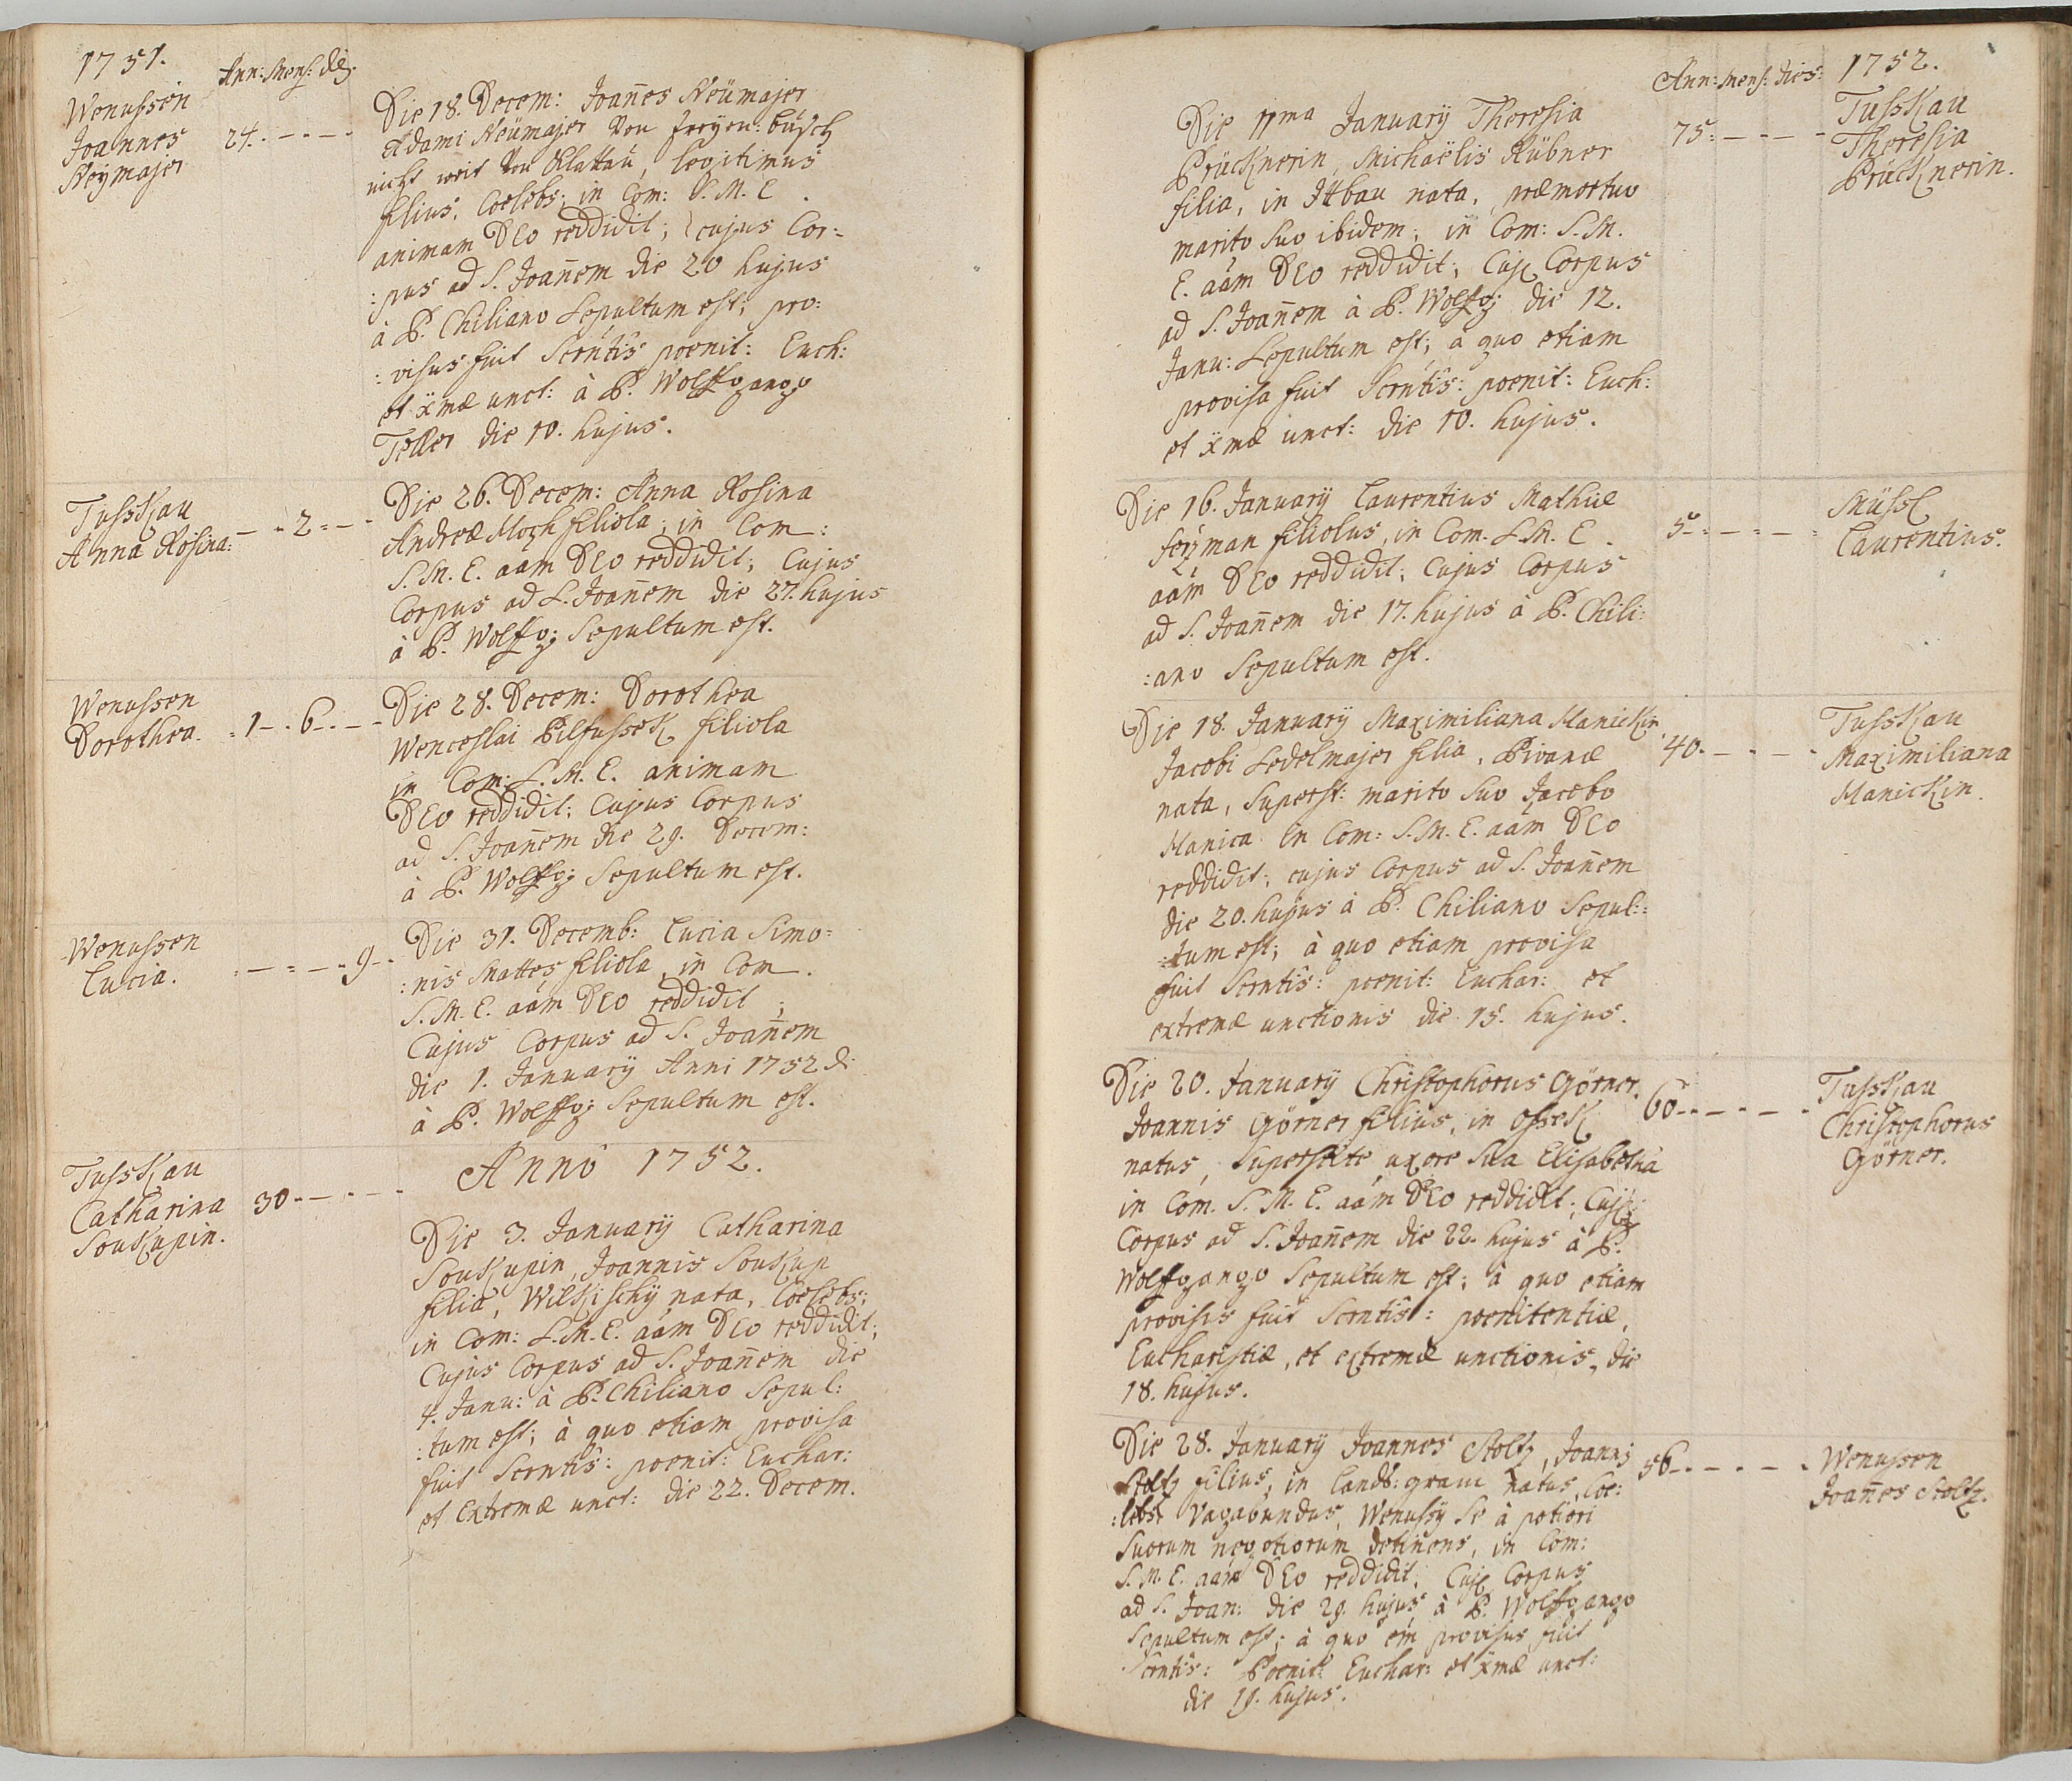 1751.
Ann: Mens: die.
Wenussen
Joannes
Neÿmajer
24. - - - -
Die 18. Decem: Joañes Neümajer
Adami Neümajer von freÿen: büsch
nicht weit von Klattaú, legitimus
filius, Coelebs; in Com: S. M. E.
animam DEO reddidit; cujus Cor=
:pus ad S. Joañem die 20 hujus
à P. Chiliano Sepultum est; pro:
:visus fuit Scrñtis poenit: Euch:
et x̃mæ unct: à P. Wolffgango
Teller die 10. hujus.
Tusskau
Anna Rosina:
- - 2 - - -
Die 26. Decem: Anna Rosina
Andreæ Moch filiola, in Com:
S. M. E. aám DEO reddidit; Cujus
Corpus ad S. Joañem die 27. hujus
à P. Wolffg: Sepultum est.
Wenussen
Dorothea.
1 - - 6 - - -
Die 28. Decem: Dorothea
Wenceslai Pilsussek filiola
in Com: S. M. E. animam
DEO reddidit; Cujus Corpus
ad S. Joañem die 29. Decem:
à P. Wolffg: Sepultum est.
Wenussen
Lucia.
- - - - 9 - -
Die 31. Decemb: Lucia Simo=
:nis Mattes filiola, in Com.
S. M. E. aám DEO reddidit;
Cujus Corpus ad S. Joañem
die 1. Januarÿ Anni 1752 di
à P. Wolffg: Sepultum est.
Anno 1752.
Tusskau
Catharina
Soukupin.
30 - - - - -
Die 3. Januarÿ Catharina
Soukupin, Joannis Soukup
filia, Wilkischÿ nata, Coelebs;
in Com: S. M. E. aám DEO reddidit;
Cujus Corpus ad S. Joañem die
4. Janu: à P. Chiliano Sepul:
:tum est; à quo etiam provisa
fuit Scrntis: poenit: Euchar:
et Extremæ unct: die 22. Decem.
Ann: Mens: Dies:
1752.
Die 11ma Januarÿ Theresia
Prücknerin, Michaëlis Hübner
filia, in Ittbau nata, præmortuo
marito suo ibidem; in Com: S. M.
E. aám DEO reddidit; Cuj Corpus
ad S. Joañem à P. Wolffg: die 12.
Janu: Sepultum est; à quo etiam
provisa fuit Scrntis: poenit: Euch:
et x̃mæ unct: die 10. hujus.
75: - - - -
Tusskau
Theresia
Prücknerin.
Die 16. Januarÿ Laurentius Mathiæ
feÿman filiolus, in Com. S. M. E.
aám DEO reddidit; Cujus Corpus
ad S. Joañem die 17. hujus à P. Chili:
:ano Sepultum est.
5 - - - - -
Müssl
Laurentius.
Die 18. Januarÿ Maximiliana Manickin
Jacobi Sedelmajer filia, Pivanæ
nata, superst: marito suo Jacobo
Manica in Com: S. M. E. aám DEO
reddidit; cujus Corpus ad S. Joañem
die 20. hujus à P. Chiliano Sepul::
:tum est; à quo etiam provisa
fuit Scrntis: poenit: Euchar: et
extremæ unctionis die 15. hujus.
40 - - - - -
Tusskau
Maximiliana
Manickin.
Die 20. Januarÿ Christophorus Görner,
Joannis Görner filius, in Ossek
natus, superstite uxore sua Elisabetha
in Com. S. M. E. aám DEO reddidit; Cuj
Corpus ad S. Joañem die 22. hujus à P.
Wolffgango Sepultum est; à quo etiam
provisus fuit Scrntis: poenitentiæ,
Eucharistiæ, et extremæ unctionis, die
18. hujus.
60 - - - - -
Tusskau
Christophorus
Görner.
Die 28. Januarÿ Joannes Stoltz, Joannis
Stoltz filius, in Lands:gram natus, Coe:
:lebs Vagabundus, Wenussÿ se à potiori
suorum negotiorum detinens, in Com:
S. M. E. aám DEO reddidit; Cuj Corpus
ad S. Joan: die 29. hujus à P. Wolffgango
Sepultum est; à quo eĩm provisus fuit
Scrntis: Poenit: Euchar: et x̃mæ unct:
die 19. hujus.
56 - - - - -
Wenussen
Joañes Stoltz.